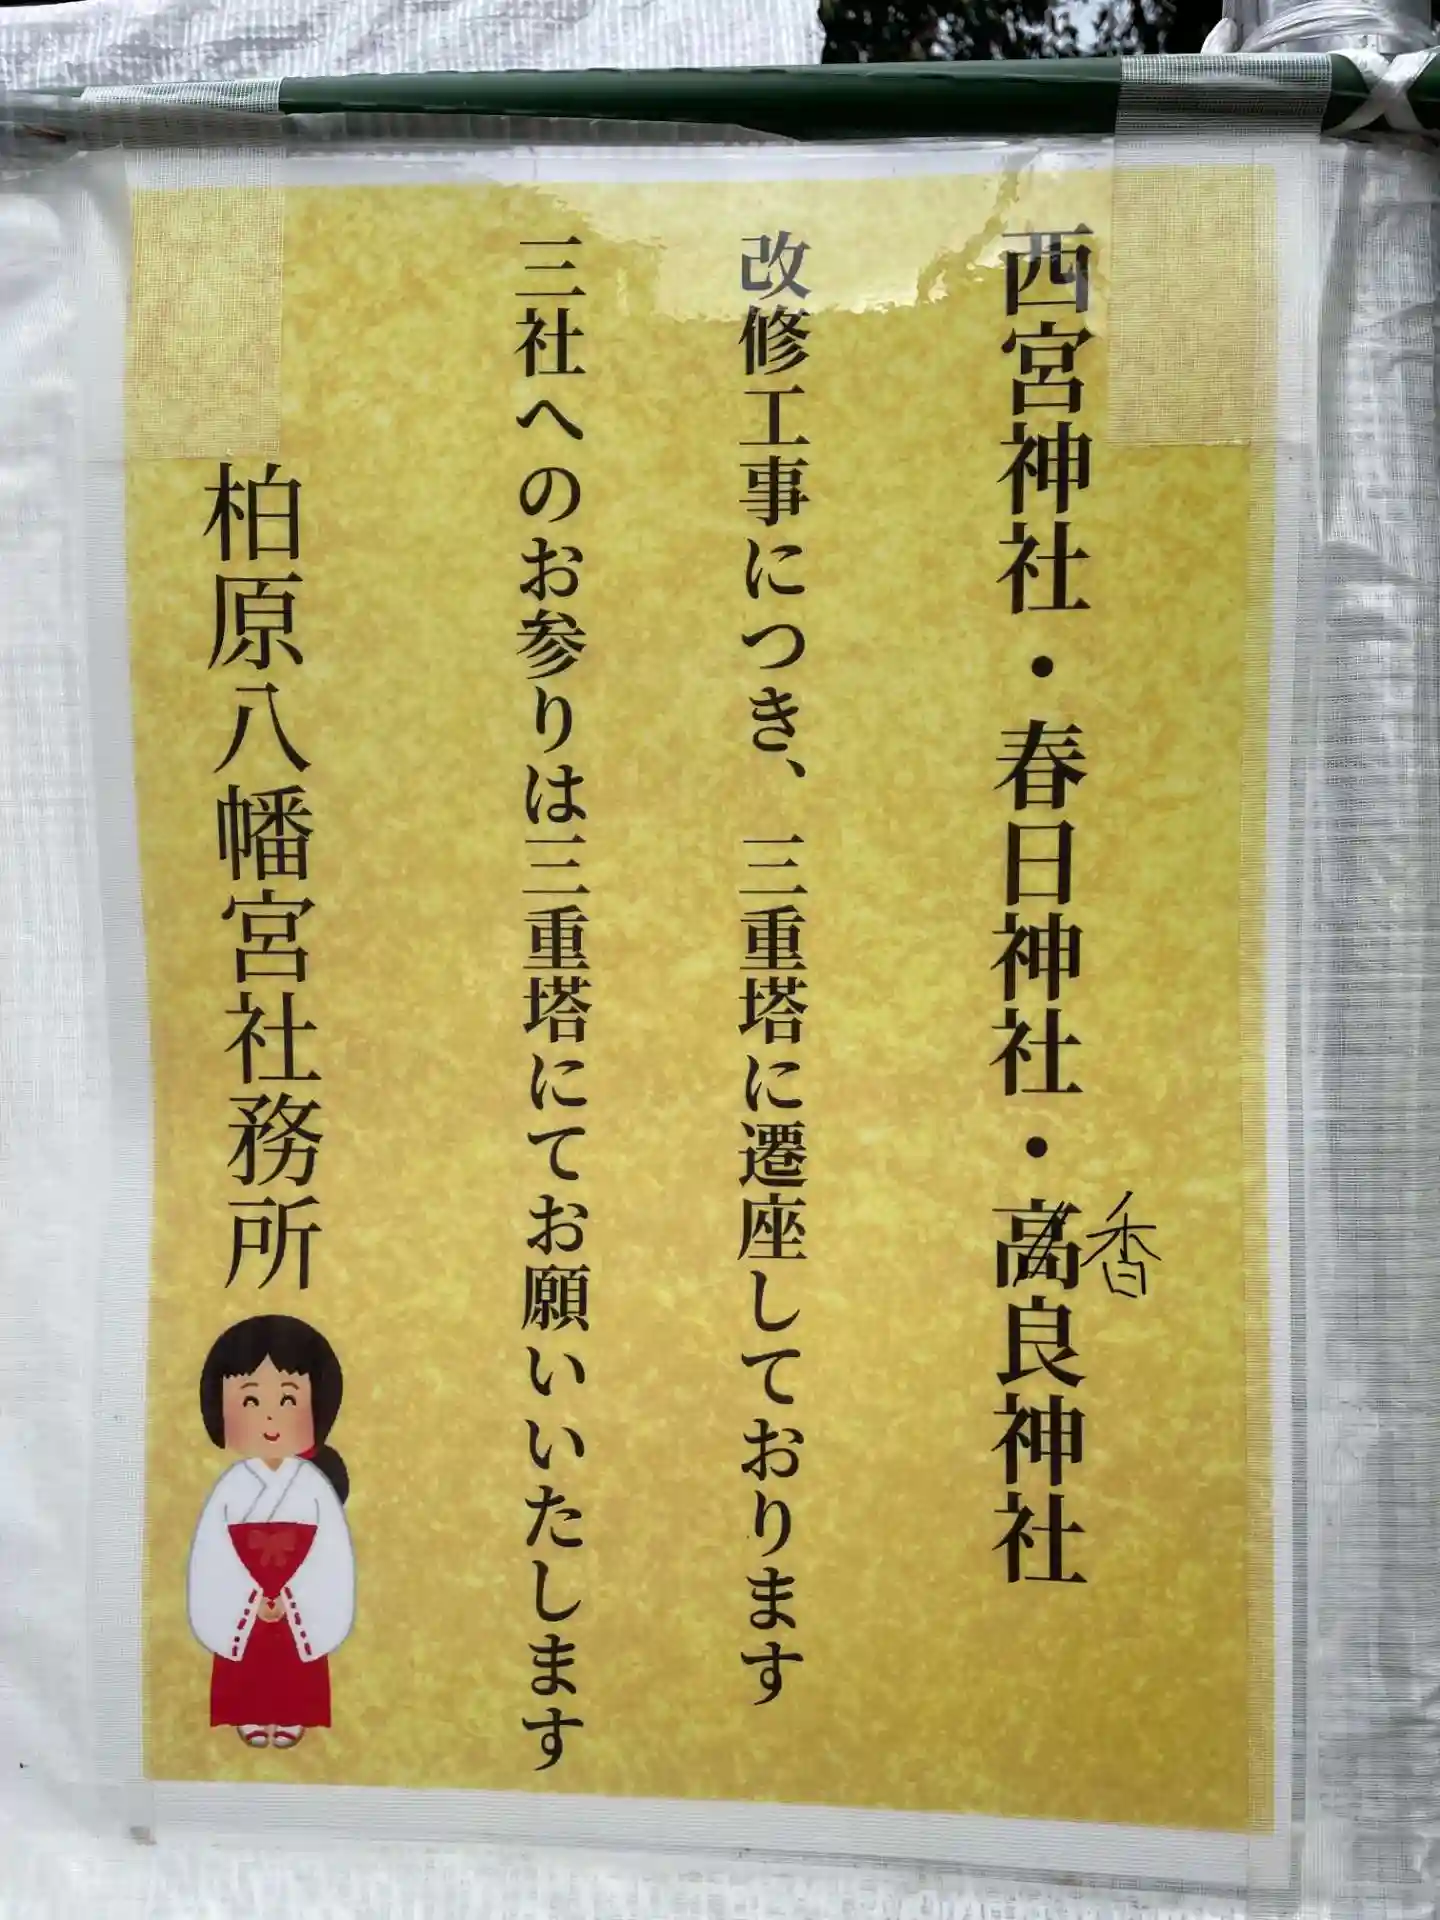 西宮神社・春日神社・高良神社
香
改修工事につき、三重塔に遷座しております
三社へのお参りは三重塔にてお願いいたします
柏原八幡宮社務所